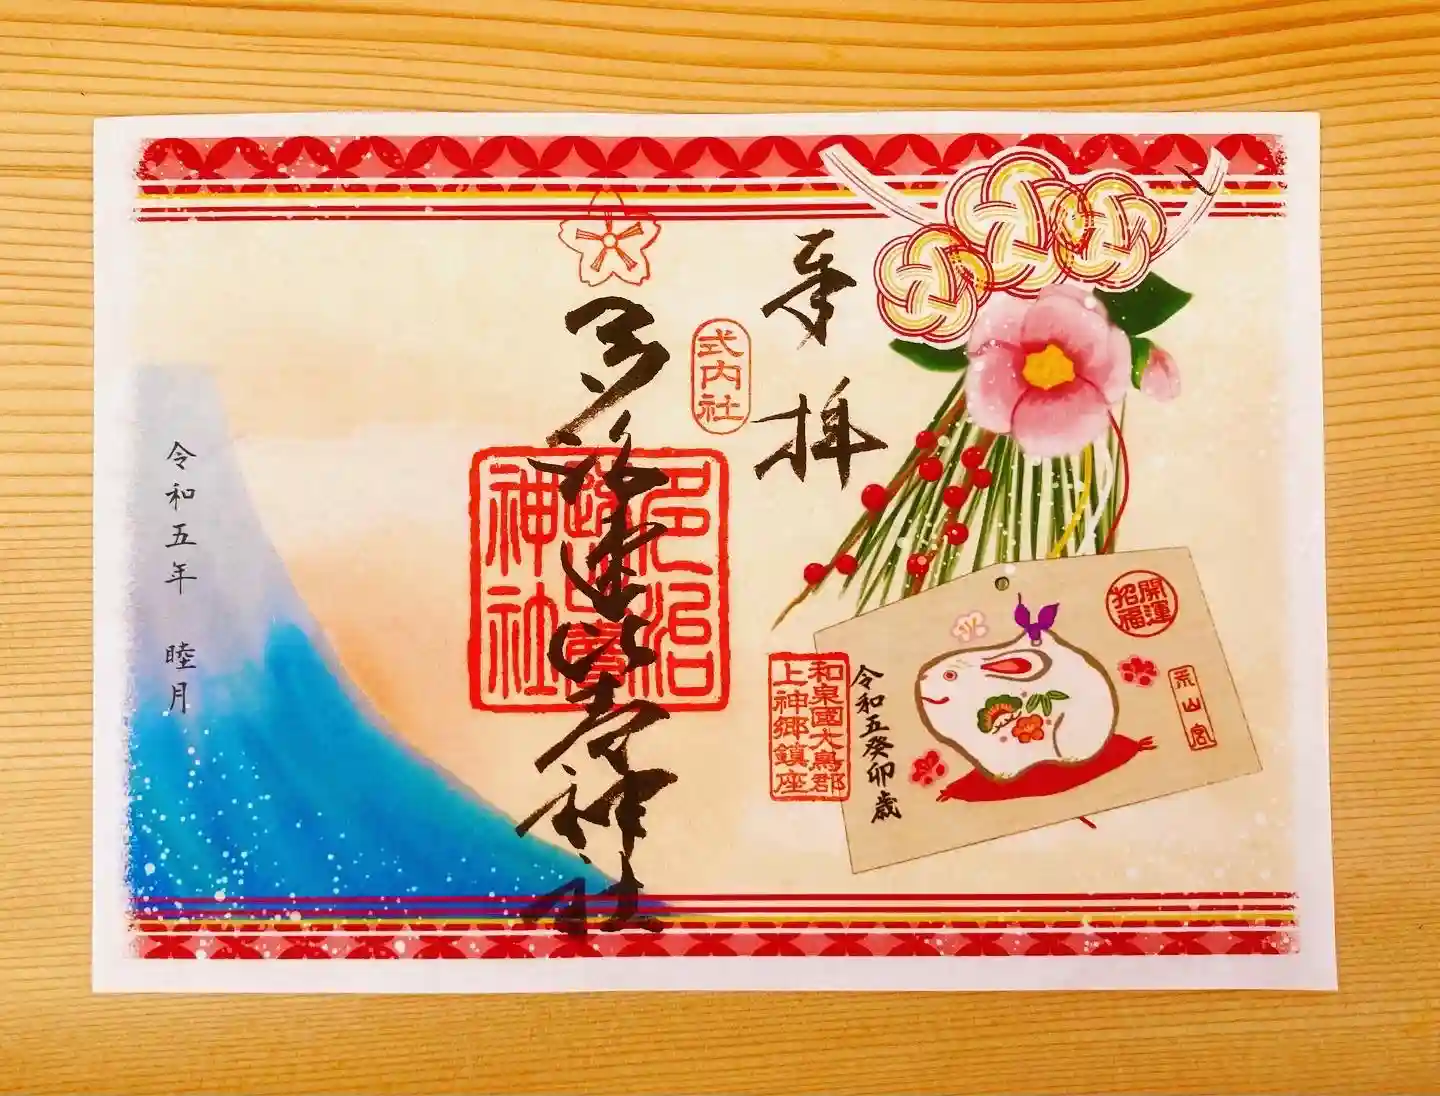 奉拝
式内社
多治速比売神社
多治速比賣神社
和泉國大鳥郡
上神郷鎮座
開運
招福
荒山宮
令和五癸卯歳
令和五年 睦月